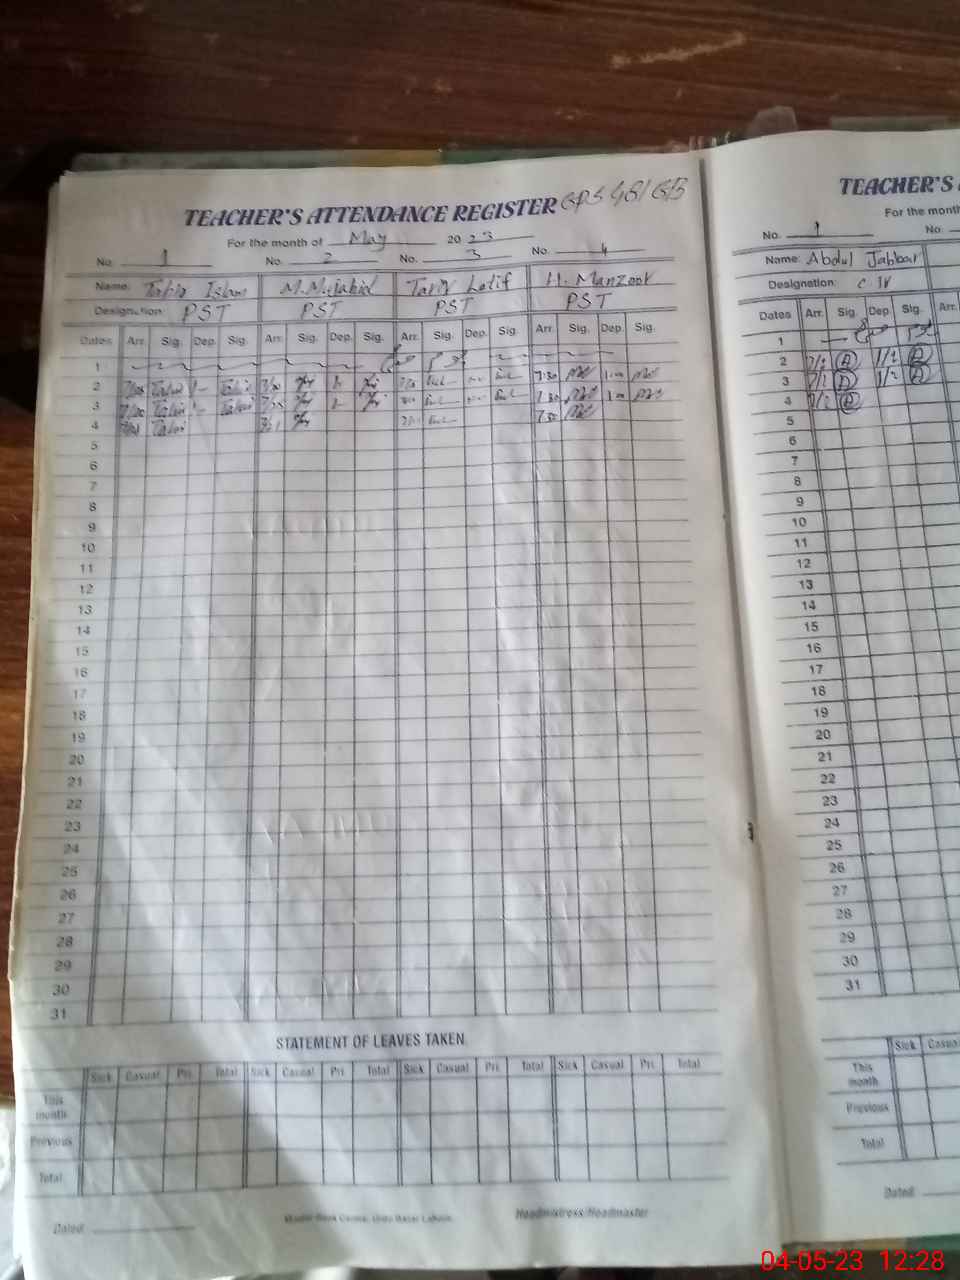 TEACHER'S ATTENDANCE REGISTER GPS 481 GB
For the month of May 2023
No. 1 No. 2 No. 3 No. 4
Name: Tahir Islam M. Mujahid Tariq Latif H. Manzoor
Designation: PST PST PST PST
Dates Arr. Sig. Dep. Sig. Arr. Sig. Dep. Sig. Arr. Sig. Dep. Sig. Arr. Sig. Dep. Sig.
1
2 7/30 Tahir 1- Tahir 7/30 7:30 1:00
3 7/30 Tahir 1- Tahir 7/30 7:30 1:00
4 Tahir 7:30
5
6
7
8
9
10
11
12
13
14
15
16
17
18
19
20
21
22
23
24
25
26
27
28
29
30
31
STATEMENT OF LEAVES TAKEN
Sick Casual Pri. Total Sick Casual Pri. Total Sick Casual Pri. Total Sick Casual Pri. Total
This month
Previous
Total
Dated: Headmistress/Headmaster
TEACHER'S
For the month
No. 1 No.
Name: Abdul Jabbar
Designation: C IV
Dates Arr. Sig. Dep. Sig. Arr.
1
2 7/2 1/2
3 7/2 1/2
4 7/2
5
6
7
8
9
10
11
12
13
14
15
16
17
18
19
20
21
22
23
24
25
26
27
28
29
30
31
Sick Casual
This month
Previous
Total
Dated:
04-05-23 12:28